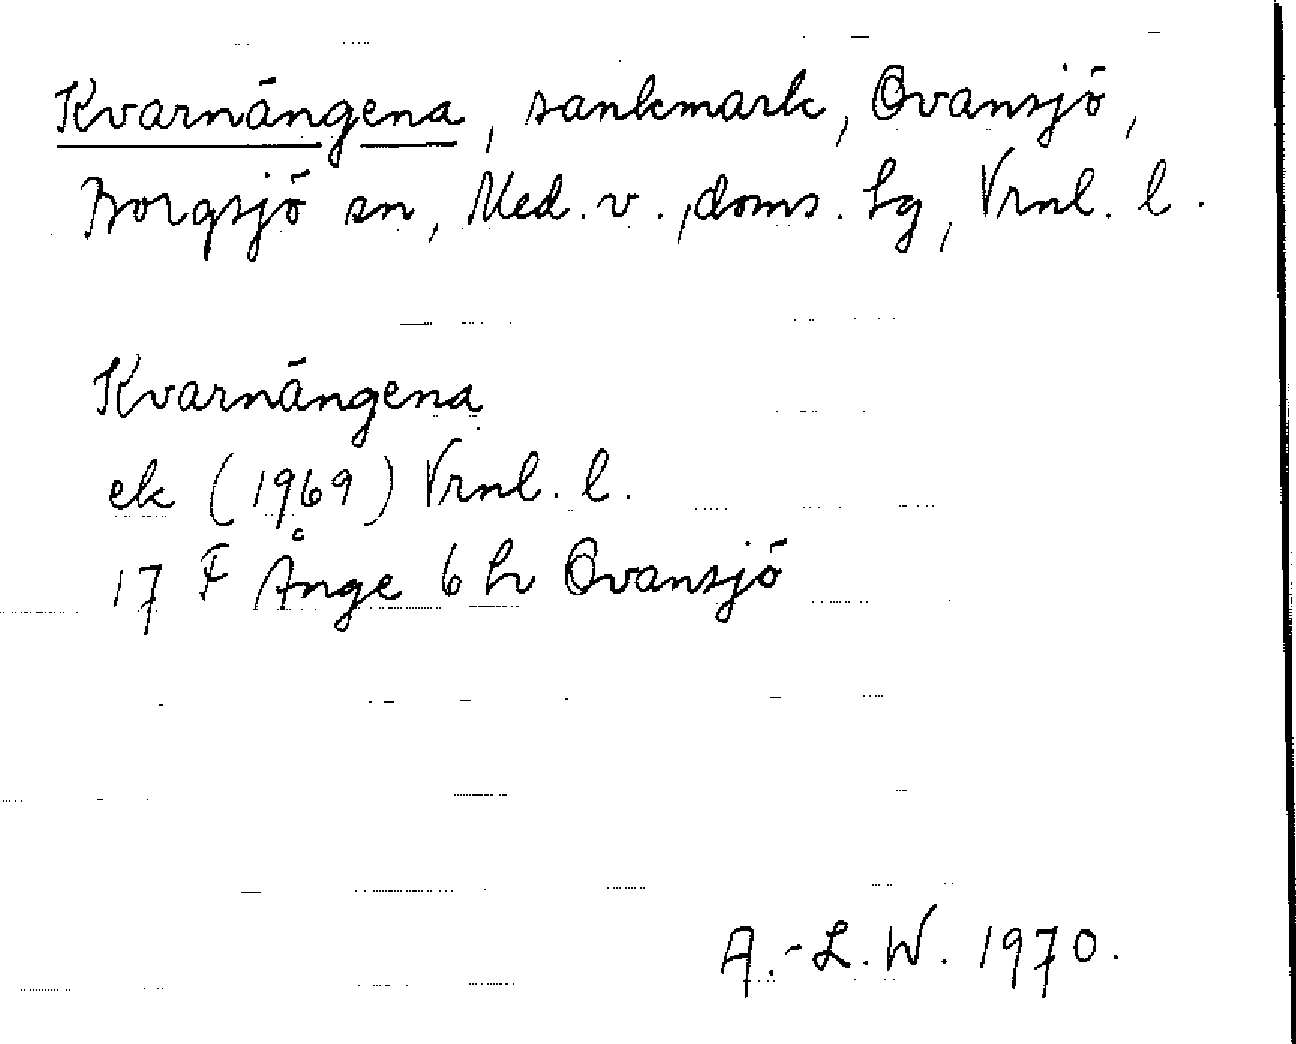 Kvarnängena, sankmark, Ovansjö,
Borgsjö sn, Med. v., doms. hg, Vrnl. l.
Kvarnängena
ek (1969) Vrnl. l.
17 F Ånge 6 h Ovansjö
A.-L. W. 1970.